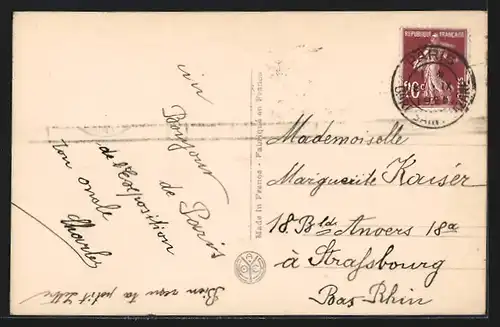 un
Bonjour
de Paris
de l'Exposition
ton oncle
Charles
Bien reçu ta petit lettre
Made in France - Fabriqué en France
REPUBLIQUE FRANÇAISE
PARIS
Mademoiselle
Marguerite Kaiser
18 Bld Anvers 18a
à Strassbourg
Bas-Rhin